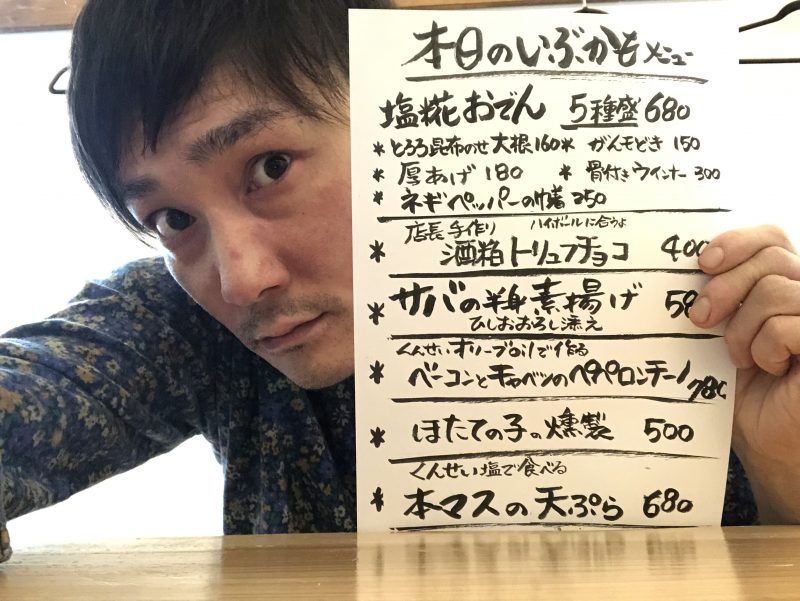 本日のいぶかもメニュー
塩糀おでん 5種盛 680
*とろろ昆布のせ大根160* がんモどき 150
*厚あげ 180 *骨付きウインナー 300
*ネギペッパーの巾着 250
店長手作り ハイボールに合うよ
*酒粕トリュフチョコ 400
*サバの半身素揚げ 58
ひしおおろし添え
くんせいオリーブoilで作る
*ベーコンとキャベツのペペロンチーノ 780
*ほたての子の燻製 500
くんせい塩で食べる
*本マスの天ぷら 680